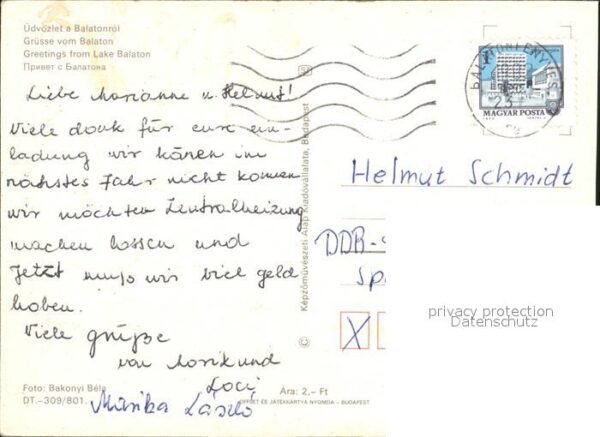 Üdvözlet a Balatonról
Grüsse vom Balaton
Greetings from Lake Balaton
Привет с Балатона
Liebe Marianne u. Helmut!
Viele dank für eure ein-
ladung wir känen im
nächstes Jahr nicht kommen
wir möchten Zentralheizung
machen lassen und
Jetzt muß wir viel geld
haben.
Viele grüße
von Marik und
Loci
Marika László
Foto: Bakonyi Béla
DT.-309/801
Ára: 2,- Ft
OFFSET ÉS JÁTÉKKÁRTYA NYOMDA - BUDAPEST
© Képzőművészeti Alap Kiadóvállalata, Budapest
MAGYAR POSTA
Helmut Schmidt
DDR-
Sp
X
privacy protection
Datenschutz